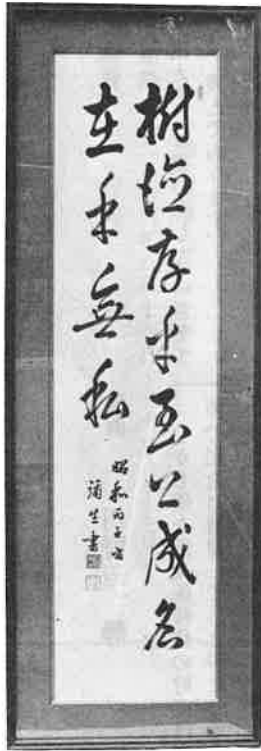 樹徳存乎至公成名
在乎無私
昭和丙子
蒲生書